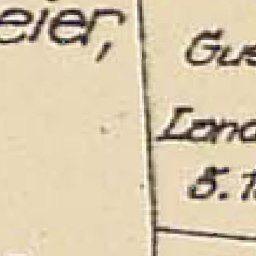 eier,
Gus
Land
5.1